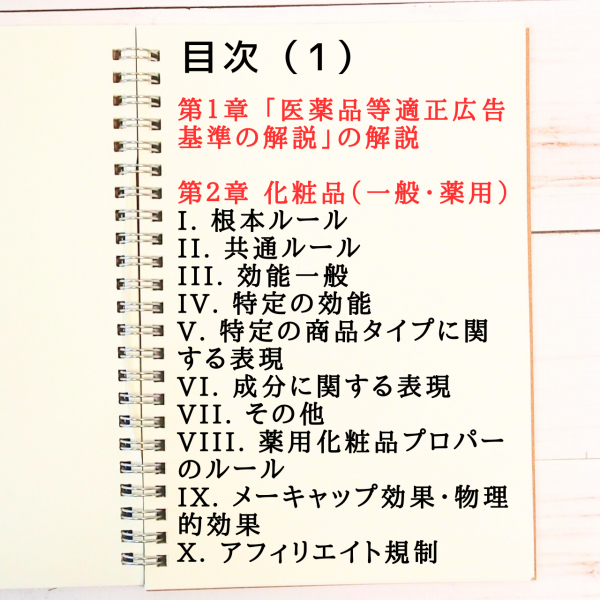 目次（1）
第1章 「医薬品等適正広告
基準の解説」の解説
第2章 化粧品（一般・薬用）
I. 根本ルール
II. 共通ルール
III. 効能一般
IV. 特定の効能
V. 特定の商品タイプに関
する表現
VI. 成分に関する表現
VII. その他
VIII. 薬用化粧品プロパー
のルール
IX. メーキャップ効果・物理
的効果
X. アフィリエイト規制